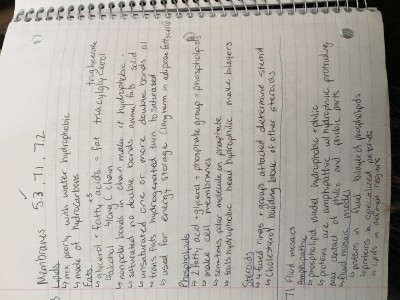 Membranes 5.3, 7.1, 7.2
Lipids
↳ mix poorly with water hydrophobic
↳ made of hydrocarbons
Fats
glycerol + fatty acids = fat triacylglycerol triglyceride
alcohol long C chain
↳ nonpolar bonds in chain make it hydrophobic
↳ saturated no double bonds animal fats solid
↳ unsaturated one or more double bonds oil
↳ trans fats hydrogenated turn to saturated
↳ used for energy storage (long term in adipose
Phospholipids
2 fatty acid + glycerol + phosphate group = phospholipids
↳ make cell membranes
↳ sometimes polar molecule on phosphate
↳ tails hydrophobic head hydrophilic make bilayers
Steroids
↳ 4 fused rings + groups attached determine steroid
↳ cholesterol building block of other steroids
7.1 Fluid mosaics
Amphipathic
↳ phospholipid model hydrophobic + philic
↳ proteins are amphipathic w/ hydrophilic protruding
↳ may contain philic and phobic parts
Fluid mosaic model
↳ proteins in fluid bilayer of phospholipids
↳ proteins in specialized patches
↳ lipids in defined regions